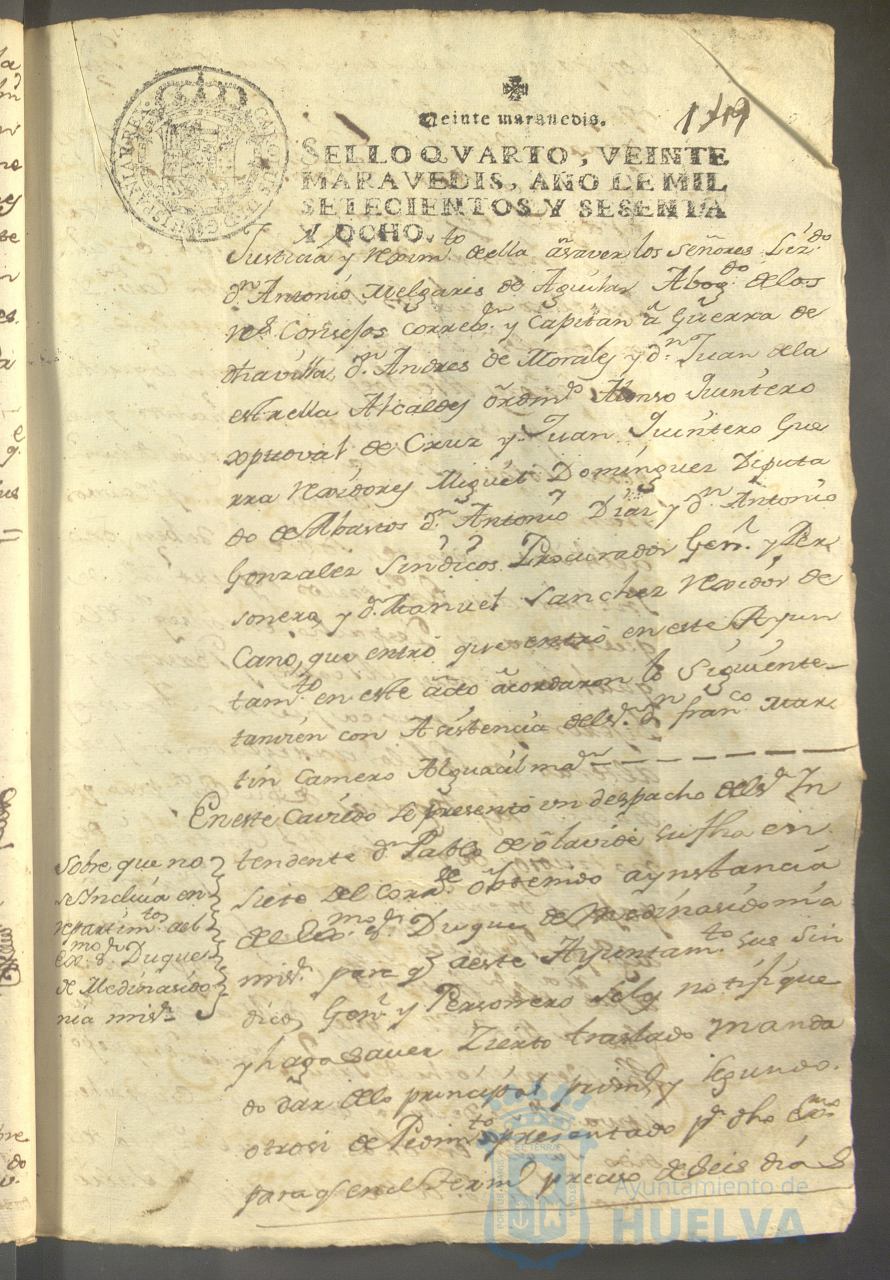 Veinte maravedis.
1719
SELLO QVARTO, VEINTE
MARAVEDIS, AÑO DE MIL
SETECIENTOS Y SESENTA
Y OCHO.
Justicia y Reximto. de ella â saver los Señores Lizdo.
dn. Antonio Melgarejo de Aguilar Abogdo. de los
Rs. Consejos Correxor. y Capitan â Guerra de
dha villa, dn. Andres de Morales y dn. Juan de la
estrella Alcaldes ôrdins. Alonso Quintero
xptoval de Cruz y Juan Quintero Gue
rra Rexidores Miguel Dominguez Diputa
do de Abastos dn. Antonio Diaz y dn. Antonio
Gonzalez Sindicos Procurador Genl. y Per
sonero, y dn. Manuel Sanchez Rexidor de
Cano, que entró que entró en este Ayun
tamto. en este âcto âcordaron lo Siguiente
tanvien con Asistencia del sr. dn. franco. Mar
tin Camero Alguacil mâr.
En este Cavildo se presentó un despacho del sr. In
tendente dn. Pablo de ôlavide su fha en
siete del corrte. ôbtenido a ynstancia
del Exmo. sr. Duque de Medinasidonia
mi sr. para q. a este Ayuntamto. sus Sin
dicos Genl. y Personero se les notifique
y haga saver Zierto traslado manda
do dar de lo principal primo. y segundo
otrosi de Pedimto. presentado pr. dho Exmo.
para q. en el termo. preciso de seis dias
Sobre que no
se Incluia en
repartimtos. al
Exmo. sr. Duque
de Medinasido
nia mi sr.
Ayuntamiento de
HUELVA